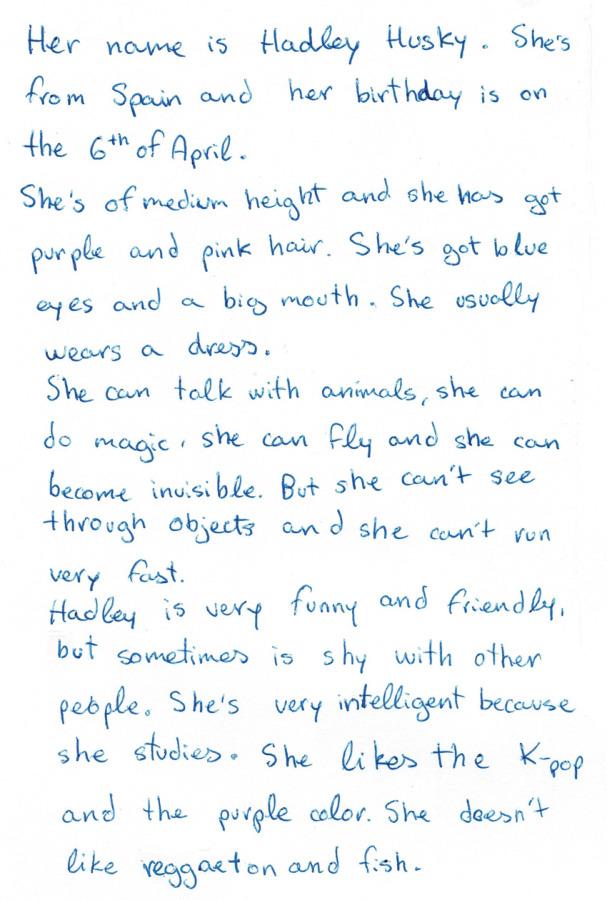 Her name is Hadley Husky. She's
from Spain and her birthday is on
the 6th of April.
She's of medium height and she has got
purple and pink hair. She's got blue
eyes and a big mouth. She usually
wears a dress.
She can talk with animals, she can
do magic, she can fly and she can
become invisible. But she can't see
through objects and she can't run
very fast.
Hadley is very funny and friendly,
but sometimes is shy with other
people. She's very intelligent because
she studies. She likes the K-pop
and the purple color. She doesn't
like reggaeton and fish.